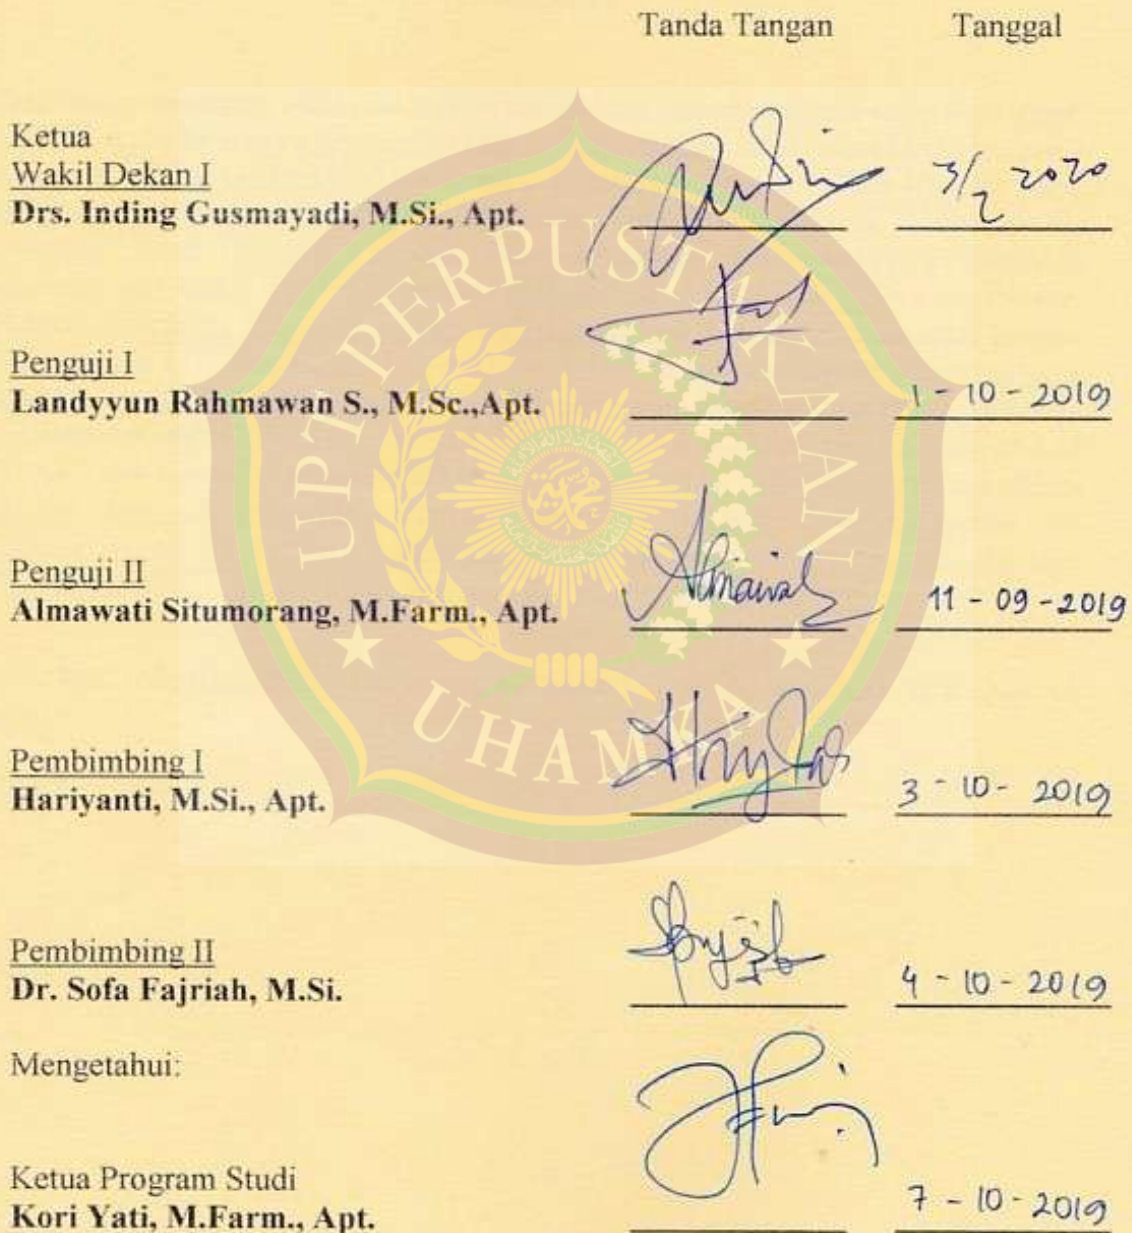 Tanda Tangan Tanggal
Ketua
Wakil Dekan I
Drs. Inding Gusmayadi, M.Si., Apt. 3/2 2020
Penguji I
Landyyun Rahmawan S., M.Sc.,Apt. 1 - 10 - 2019
Penguji II
Almawati Situmorang, M.Farm., Apt. 11 - 09 - 2019
Pembimbing I
Hariyanti, M.Si., Apt. 3 - 10 - 2019
Pembimbing II
Dr. Sofa Fajriah, M.Si. 4 - 10 - 2019
Mengetahui:
Ketua Program Studi
Kori Yati, M.Farm., Apt. 7 - 10 - 2019
UPT PERPUSTAKAAN
UHAMKA